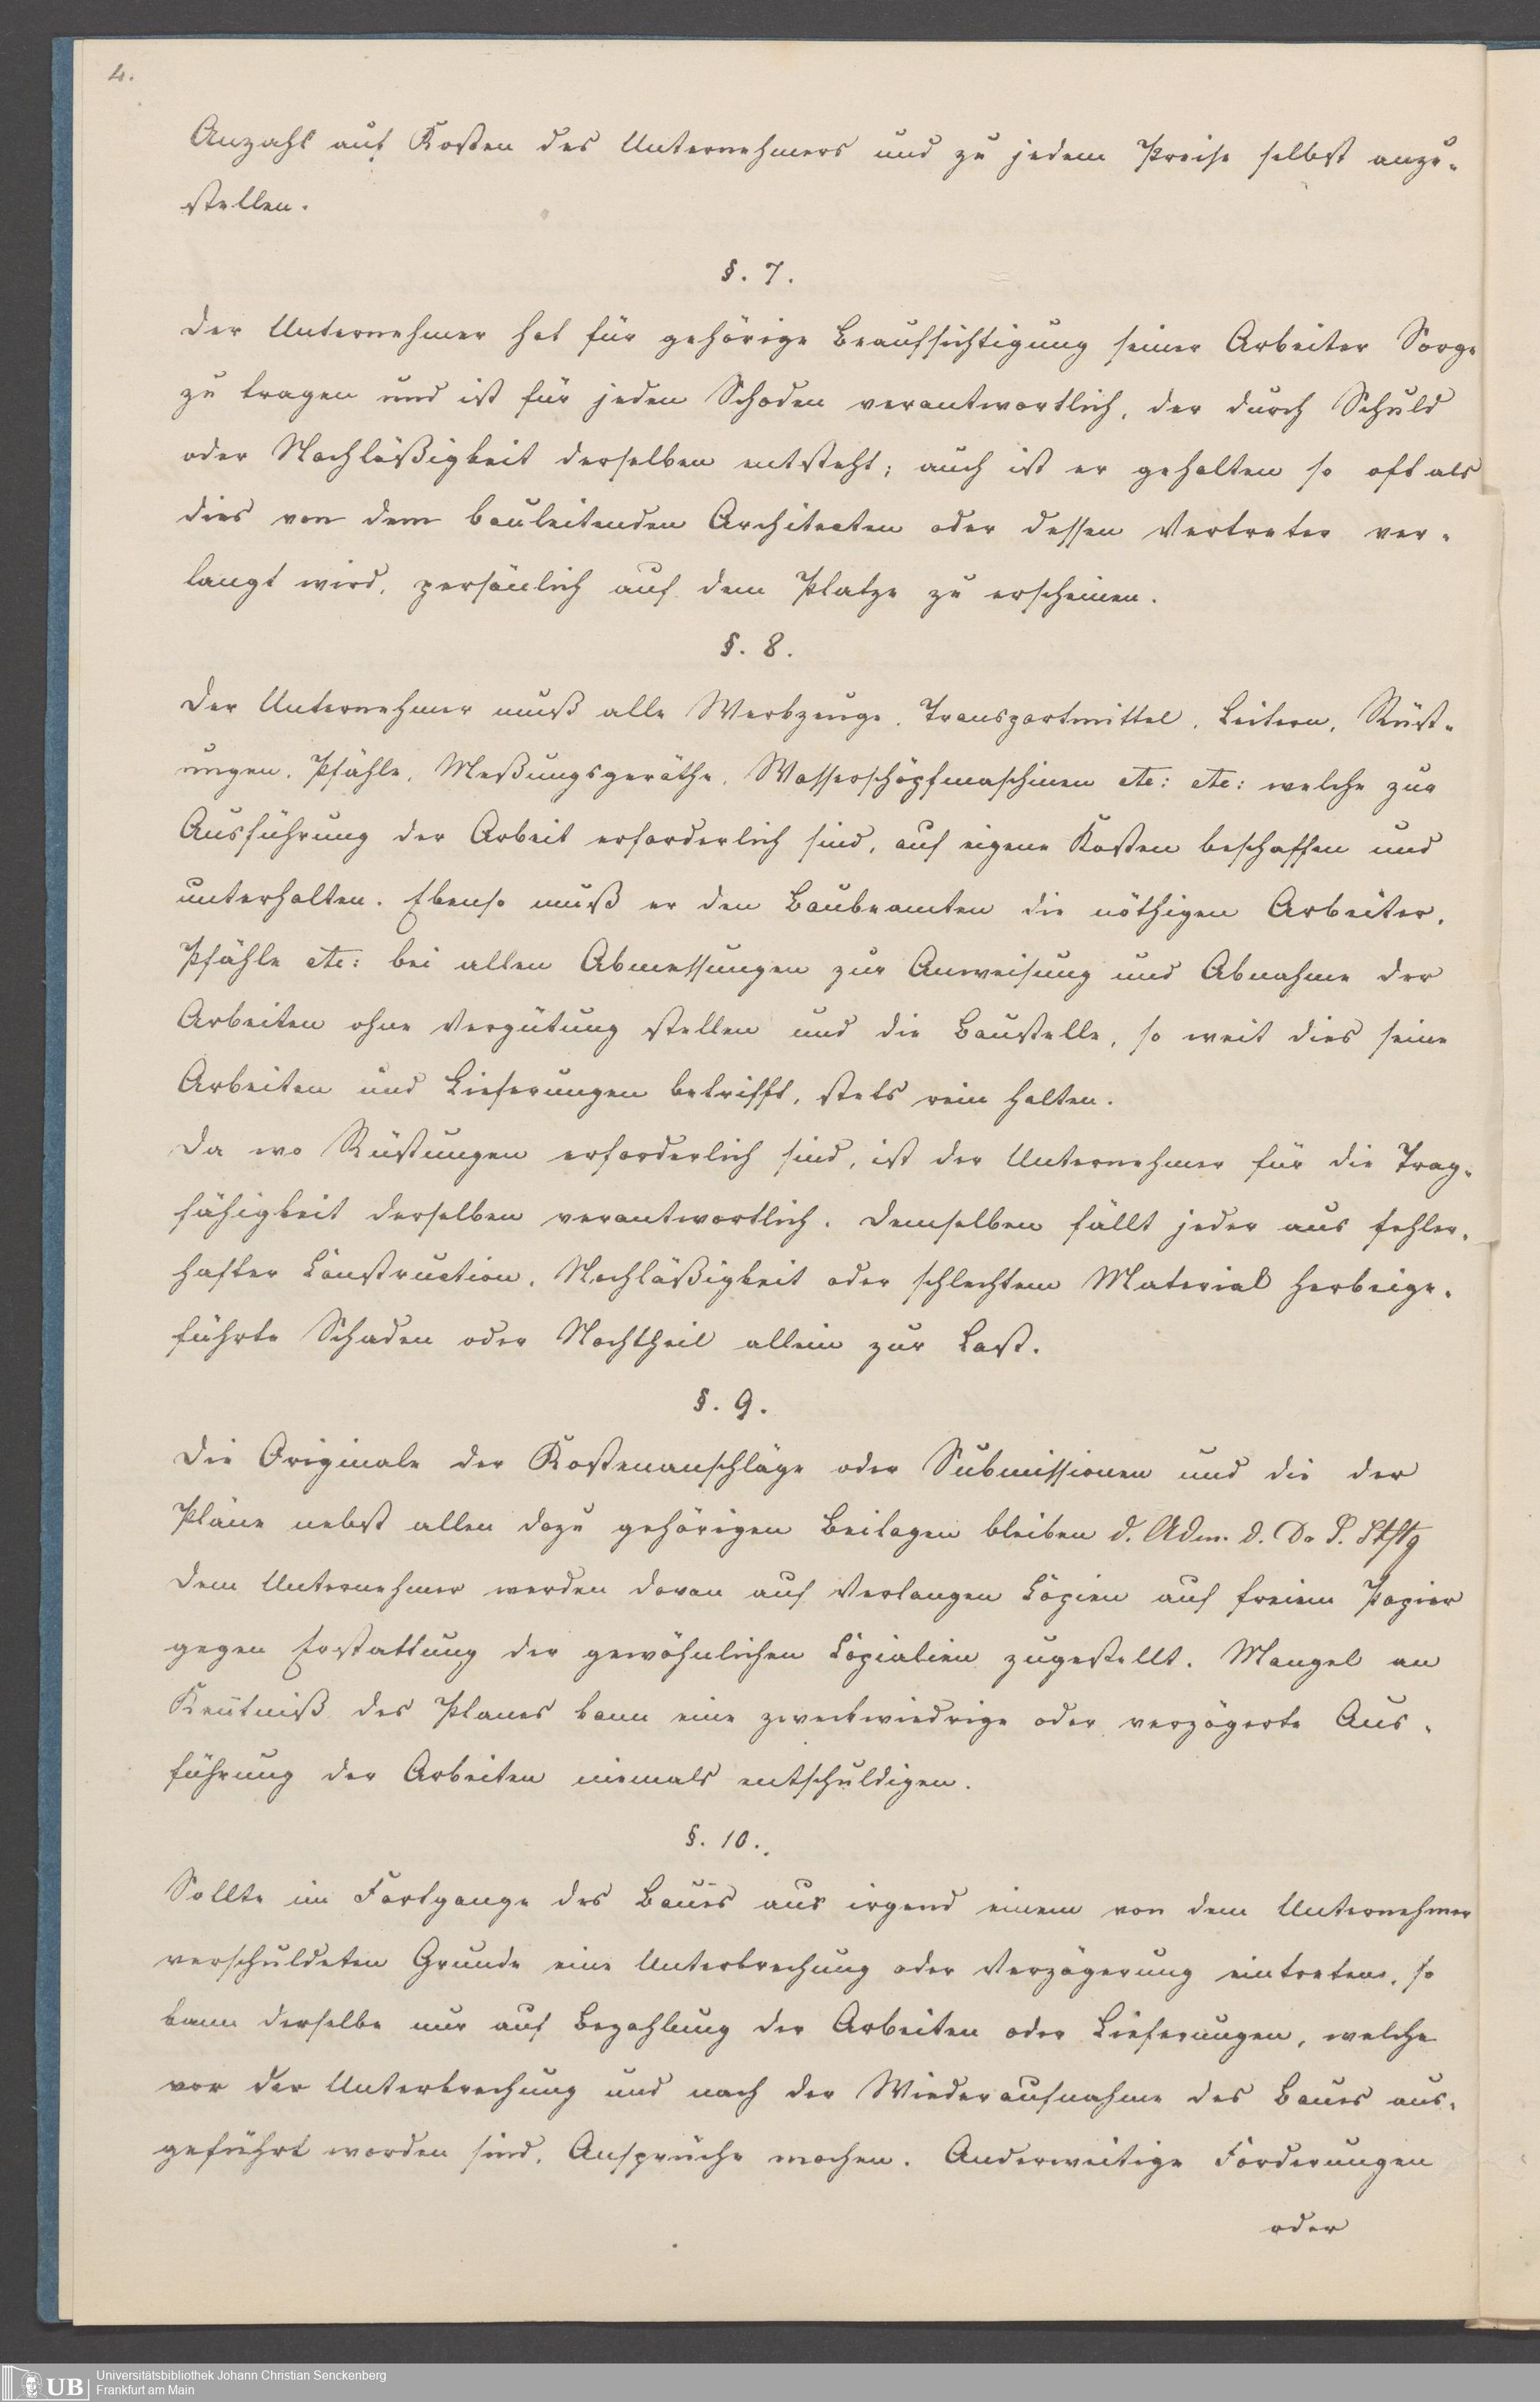 4.
Anzahl auf Kosten des Unternehmers und zu jedem Preise selbst anzu-
stellen.
§. 7.
Der Unternehmer hat für gehörige Beaufsichtigung seiner Arbeiter Sorge
zu tragen und ist für jeden Schaden verantwortlich, der durch Schuld
oder Nachläßigkeit derselben entsteht; auch ist er gehalten so oft als
dies von dem bauleitenden Architecten oder dessen Vertreter ver-
langt wird, persönlich auf dem Platze zu erscheinen.
§. 8.
Der Unternehmer muß alle Werkzeuge, Transportmittel, Leitern, Rüst-
ungen, Pfähle, Meßungsgeräthe, Wasserschöpfmaschinen etc: etc: welche zur
Ausführung der Arbeit erforderlich sind, auf eigene Kosten beschaffen und
unterhalten. Ebenso muß er den Baubeamten die nöthigen Arbeiter,
Pfähle etc: bei allen Abmessungen zur Anweisung und Abnahme der
Arbeiten ohne Vergütung stellen und die Baustelle, so weit dies seine
Arbeiten und Lieferungen betrifft, stets rein halten.
Da wo Rüstungen erforderlich sind, ist der Unternehmer für die Trag-
fähigkeit derselben verantwortlich. Demselben fällt jeder aus fehler-
hafter Construction, Nachläßigkeit oder schlechtem Material herbeige-
führte Schaden oder Nachtheil allein zur Last.
§. 9.
Die Originale der Kostenanschläge oder Submissionen und die der
Pläne nebst allen dazu gehörigen Beilagen bleiben d. Adm. d. Dr S. Stftg
Dem Unternehmer werden davon auf Verlangen Copien auf freiem Papier
gegen Erstattung der gewöhnlichen Copialien zugestellt. Mangel an
Kentniß des Planes kann eine zweckwiedrige oder verzögerte Aus-
führung der Arbeiten niemals entschuldigen.
§. 10.
Sollte im Fortgange des Baues aus irgend einem von dem Unternehmer
verschuldeten Grunde eine Unterbrechung oder Verzögerung eintreten, so
kann derselbe nur auf Bezahlung der Arbeiten oder Lieferungen, welche
vor der Unterbrechung und nach der Wiederaufnahme des Baues aus-
geführt worden sind, Ansprüche machen. Anderweitige Forderungen
oder
UB
Universitätsbibliothek Johann Christian Senckenberg
Frankfurt am Main